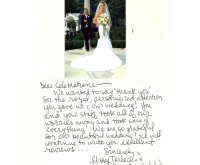 Dear Celebrations
We wanted to say "thank you"
for the royal, personalized attention
you gave us & our wedding! You
and your staff took all of our
worries away and took care of
everything! We are so grateful
for our beautiful wedding! I will
continue to write you excellent
reviews...
Sincerely,
Missy